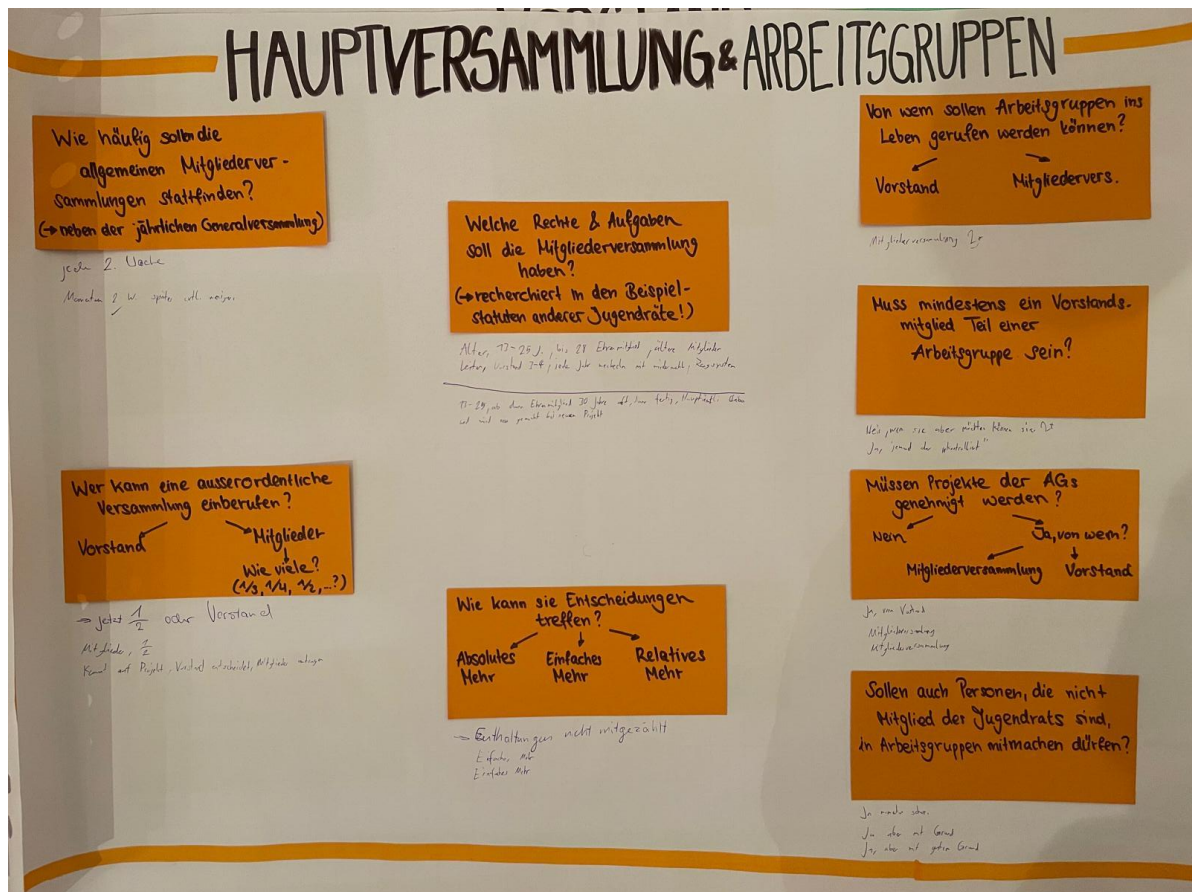 HAUPTVERSAMMLUNG & ARBEITSGRUPPEN
Wie häufig sollen die
allgemeinen Mitgliederver-
sammlungen stattfinden?
(→ neben der jährlichen Generalversammlung)
jede 2. Woche
2 W. später
Wer kann eine ausserordentliche
Versammlung einberufen?
Vorstand
Mitglieder
Wie viele?
(1/3, 1/4, 1/2, ...?)
→ jetzt 1/2 oder Vorstand
Mitglieder, 1/2
auf Projekt, Vorstand entscheidet, Mitglieder
Welche Rechte & Aufgaben
soll die Mitgliederversammlung
haben?
(→ recherchiert in den Beispiel-
statuten anderer Jugendräte!)
Alter, 13-25 J., bis 28 Ehrenmitglied, ältere Mitglieder
Vorstand 3-4, jede Jahr
Ehrenmitglied 30 Jahre
Projekt
Wie kann sie Entscheidungen
treffen?
Absolutes
Mehr
Einfaches
Mehr
Relatives
Mehr
→ Enthaltungen nicht mitgezählt
Einfaches Mehr
Einfaches Mehr
Von wem sollen Arbeitsgruppen ins
Leben gerufen werden können?
Vorstand
Mitgliedervers.
Mitgliederversammlung
Muss mindestens ein Vorstands-
mitglied Teil einer
Arbeitsgruppe sein?
Nein, wenn sie aber möchten können sie
Ja, jemand der
Müssen Projekte der AGs
genehmigt werden?
Nein
Ja, von wem?
Mitgliederversammlung
Vorstand
Ja, vom Vorstand
Mitgliederversammlung
Mitgliederversammlung
Sollen auch Personen, die nicht
Mitglied der Jugendrats sind,
in Arbeitsgruppen mitmachen dürfen?
Ja
Ja aber mit Grund
Ja, aber mit guten Grund